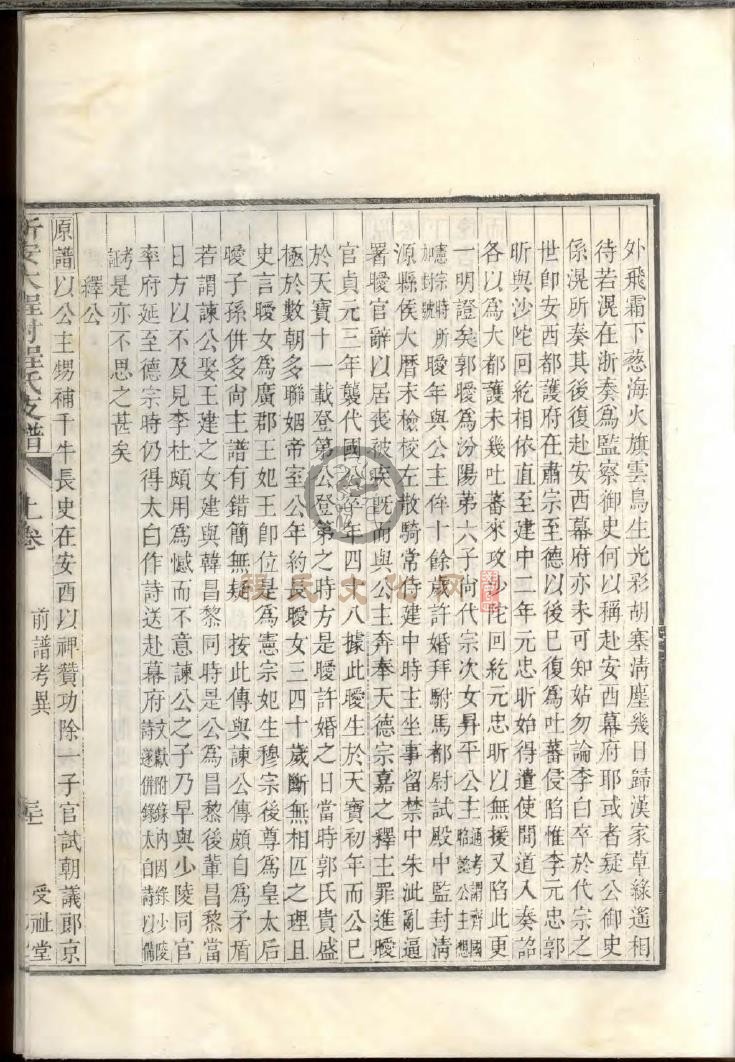 外飛霜下葱海火旗雲鳥生光彩胡塞清塵幾日歸漢家草綠遙相
待若滉在浙奏爲監察御史何以稱赴安西幕府耶或者疑公御史
係滉所奏其後復赴安西幕府亦未可知姑勿論李白卒於代宗之
世卽安西都護府在肅宗至德以後已復爲吐蕃侵陷惟李元忠郭
昕與沙陀回紇相依直至建中二年元忠昕始得遣使間道入奏詔
各以爲大都護未幾吐蕃來攻沙陀回紇元忠昕以無援又陷此更
一明證矣郭曖爲汾陽第六子尚代宗次女昇平公主通考謂齊國昭懿公主想
憲宗時所加封號曖年與公主侔十餘歲許婚拜駙馬都尉試殿中監封淸
源縣侯大曆末檢校左散騎常侍建中時主坐事留禁中朱泚亂逼
署曖官辭以居喪被疾既而與公主奔奉天德宗嘉之釋主罪進曖
官貞元三年襲代國公卒年四十八據此曖生於天寶初年而公已
於天寶十一載登第公登第之時方是曖許婚之日當時郭氏貴盛
極於數朝多聯姻帝室公年約長曖女三四十歲斷無相匹之理且
史言曖女爲廣郡王妃王卽位是爲憲宗妃生穆宗後尊爲皇太后
曖子孫倂多尚主譜有錯簡無疑 按此傳與諫公傳頗自爲矛盾
若謂諫公娶王建之女建與韓昌黎同時是公爲昌黎後輩昌黎當
日方以不及見李杜頗用爲憾而不意諫公之子乃早與少陵同官
率府延至德宗時仍得太白作詩送赴幕府文獻附錄內因錄少陵詩遂併錄太白詩以備
考証是亦不思之甚矣
繹公
原譜以公主甥補千牛長史在安西以裨贊功除一子官試朝議郞京
新安大程村程氏支譜 上卷 前譜考異 受祉堂
程氏文化网